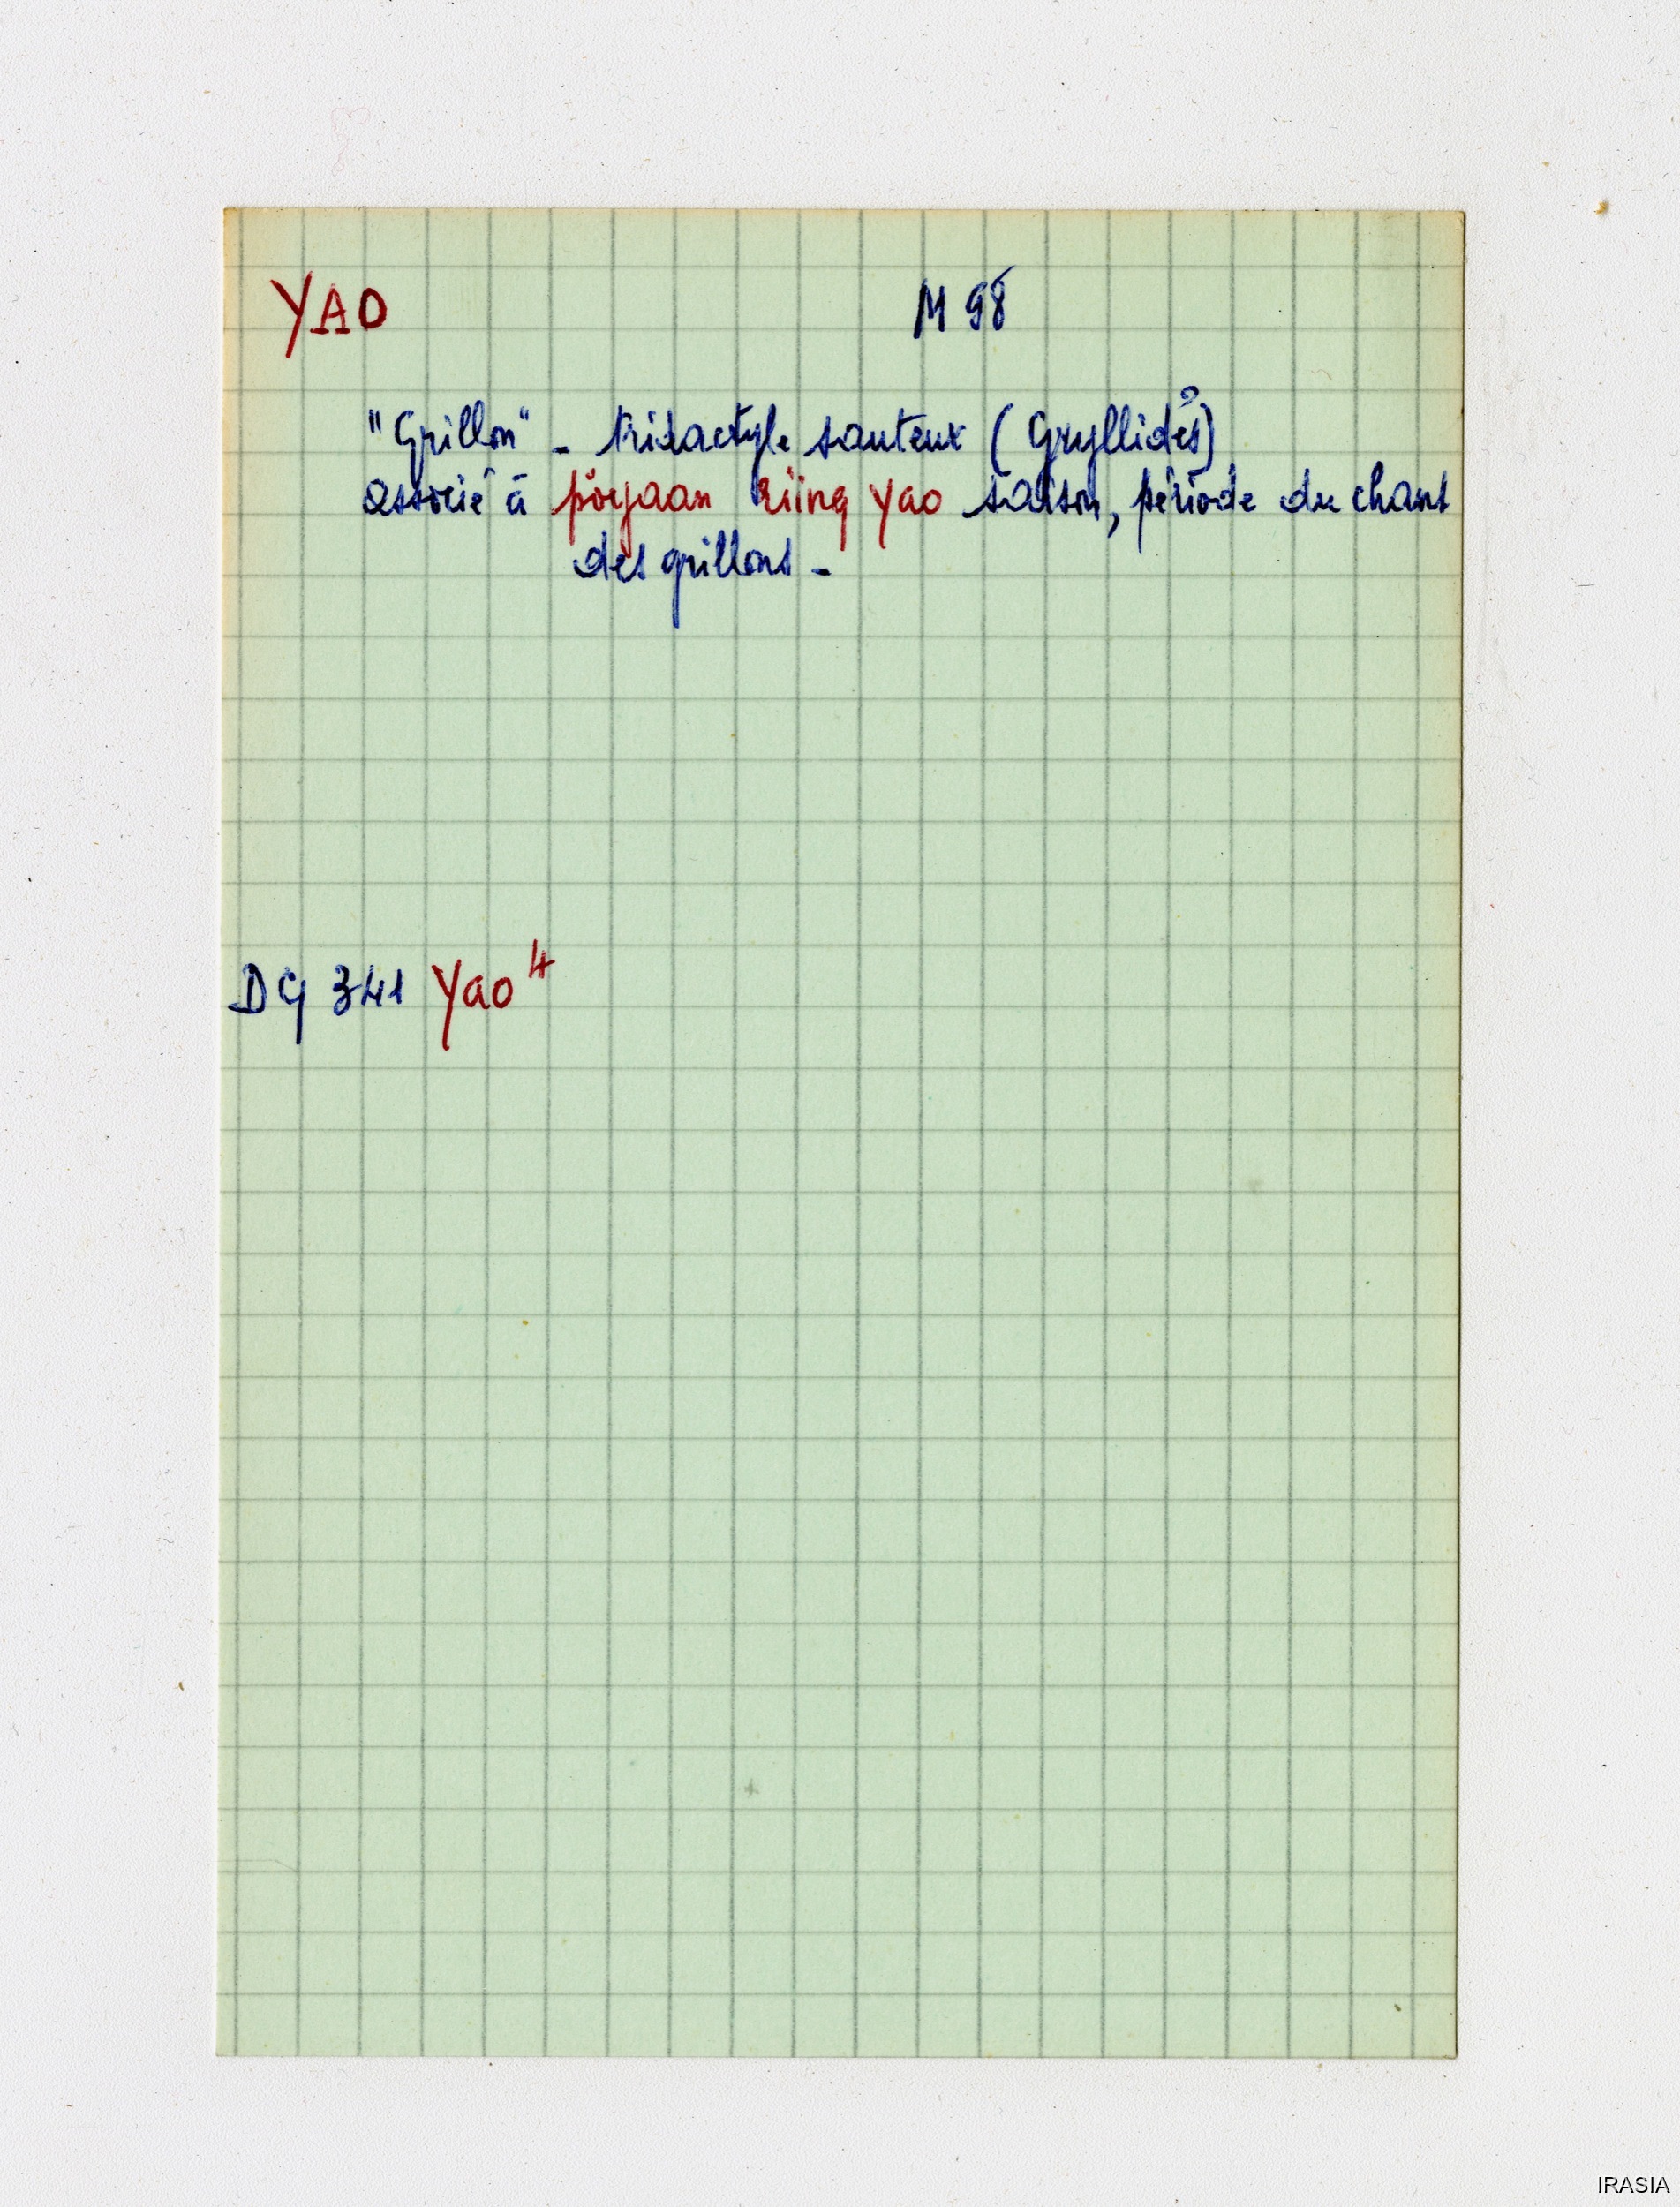 YAO M 98
"Grillon" - tridactyle sauteur (Gryllidés)
associé à pöyaan riing yao saison, période du chant
des grillons -
DG 341 yao 4
IRASIA